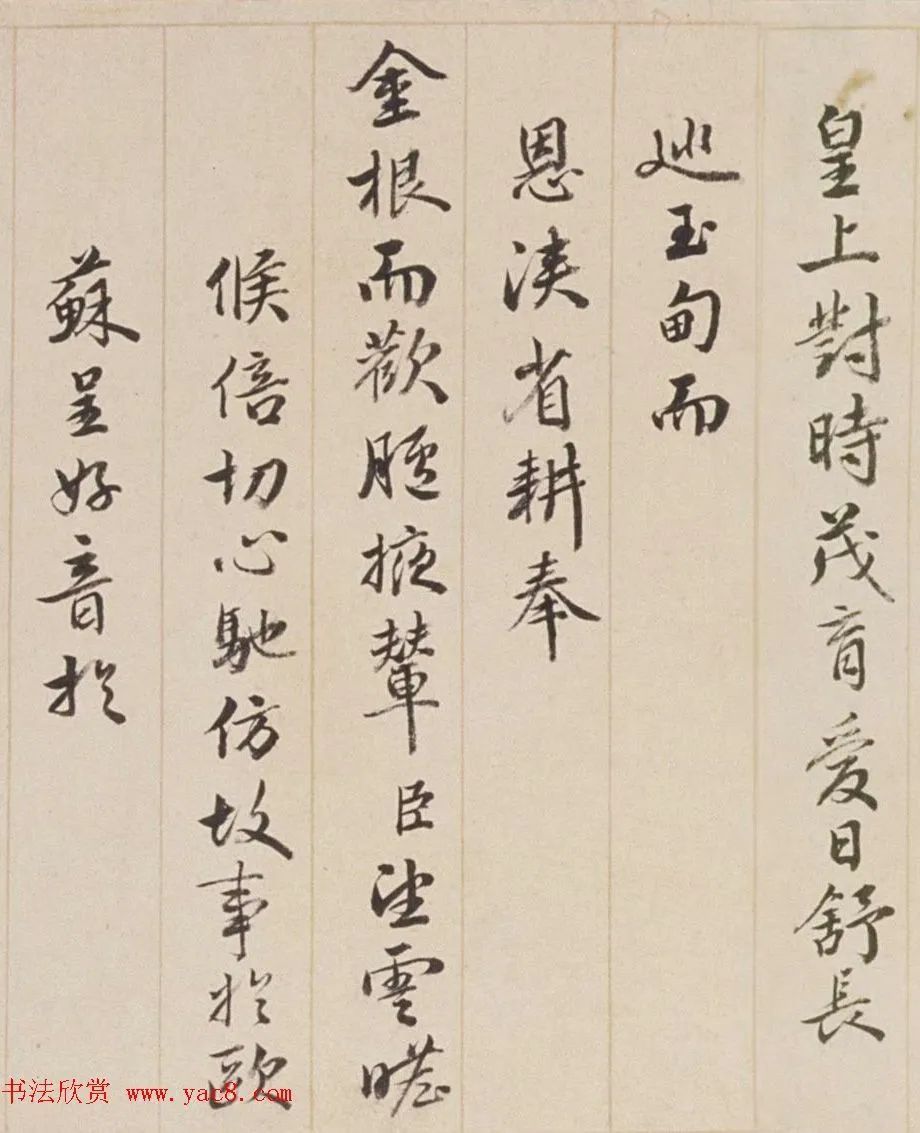 皇上對時茂育愛日舒長
巡玉甸而
恩浹省耕奉
金根而歡臚掖輦臣望雲瞻
候倍切心馳仿故事於歐
蘇呈好音於
书法欣赏 www.yac8.com